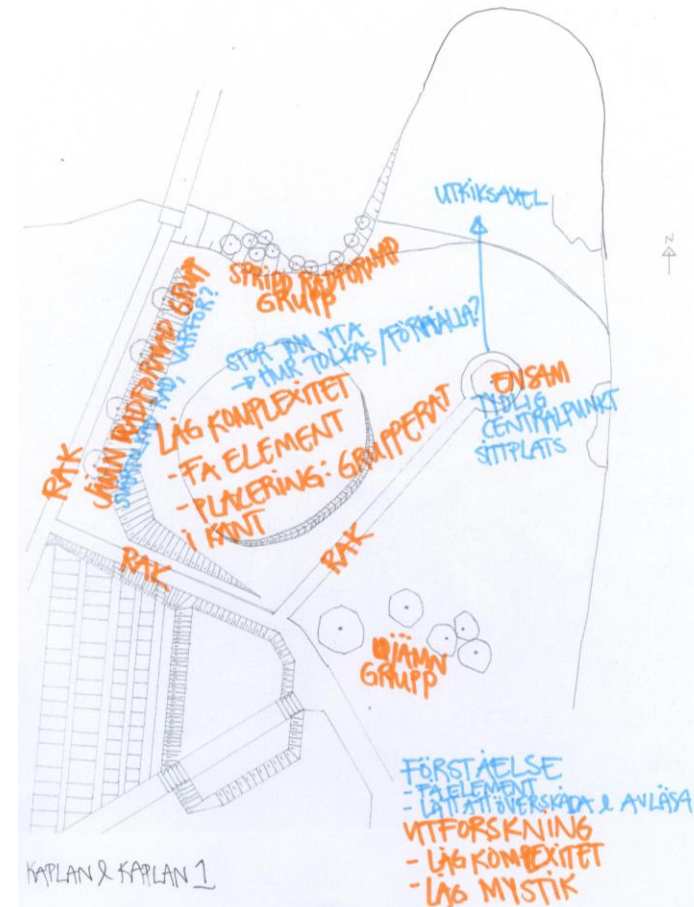 UTKIKSAXEL
N
SPRIDD RADFORMAD
GRUPP
JÄMN RADFORMAD GRUPP
RAD, VARFÖR?
STOR TOM YTA
→ HUR TOLKAS / FÖRHÅLLA?
LÅG KOMPLEXITET
- FÅ ELEMENT
- PLACERING: GRUPPERAT
I KANT
ENSAM
TYDLIG
CENTRALPUNKT
SITTPLATS
RAK
RAK
RAK
OJÄMN
GRUPP
FÖRSTÅELSE
- FÅ ELEMENT
- LÄTT ATT ÖVERSKÅDA & AVLÄSA
UTFORSKNING
- LÅG KOMPLEXITET
- LÅG MYSTIK
KAPLAN & KAPLAN 1